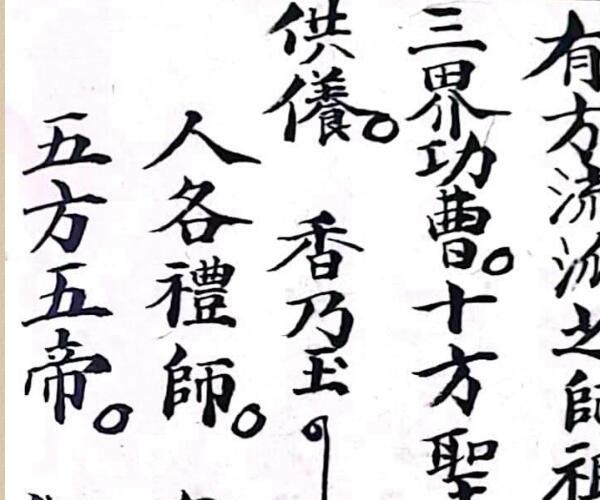 有方流派之師祖
三界功曹。十方聖
供儀。 香乃玉
人各禮師。
五方五帝。